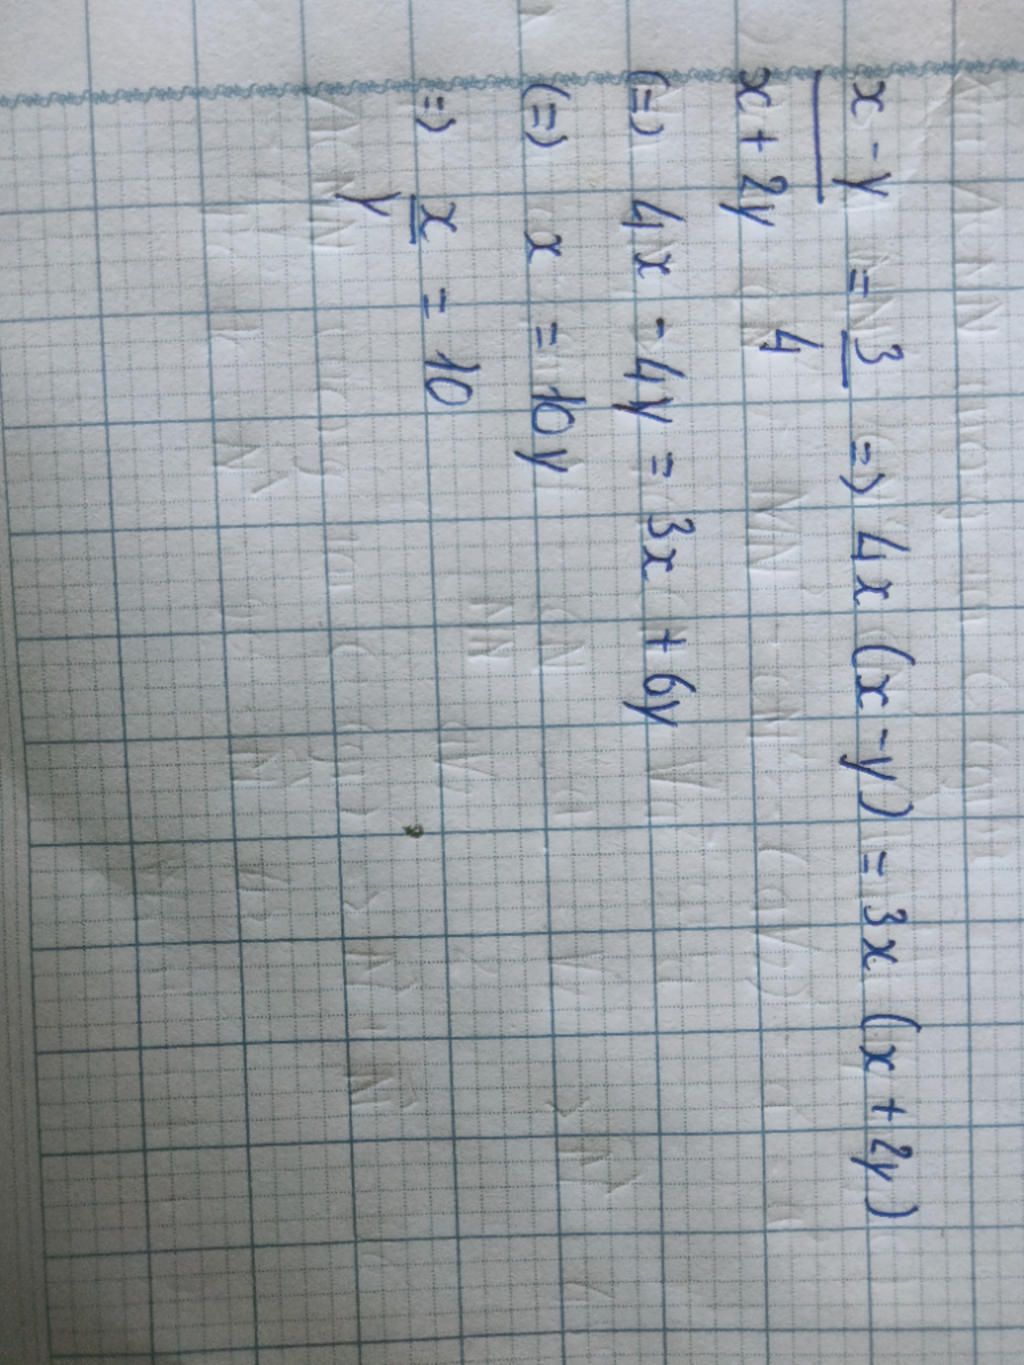 x - y / x + 2y = 3 / 4 => 4x (x - y) = 3x (x + 2y)
(=) 4x - 4y = 3x + 6y
(=) x = 10y
=> x / y = 10